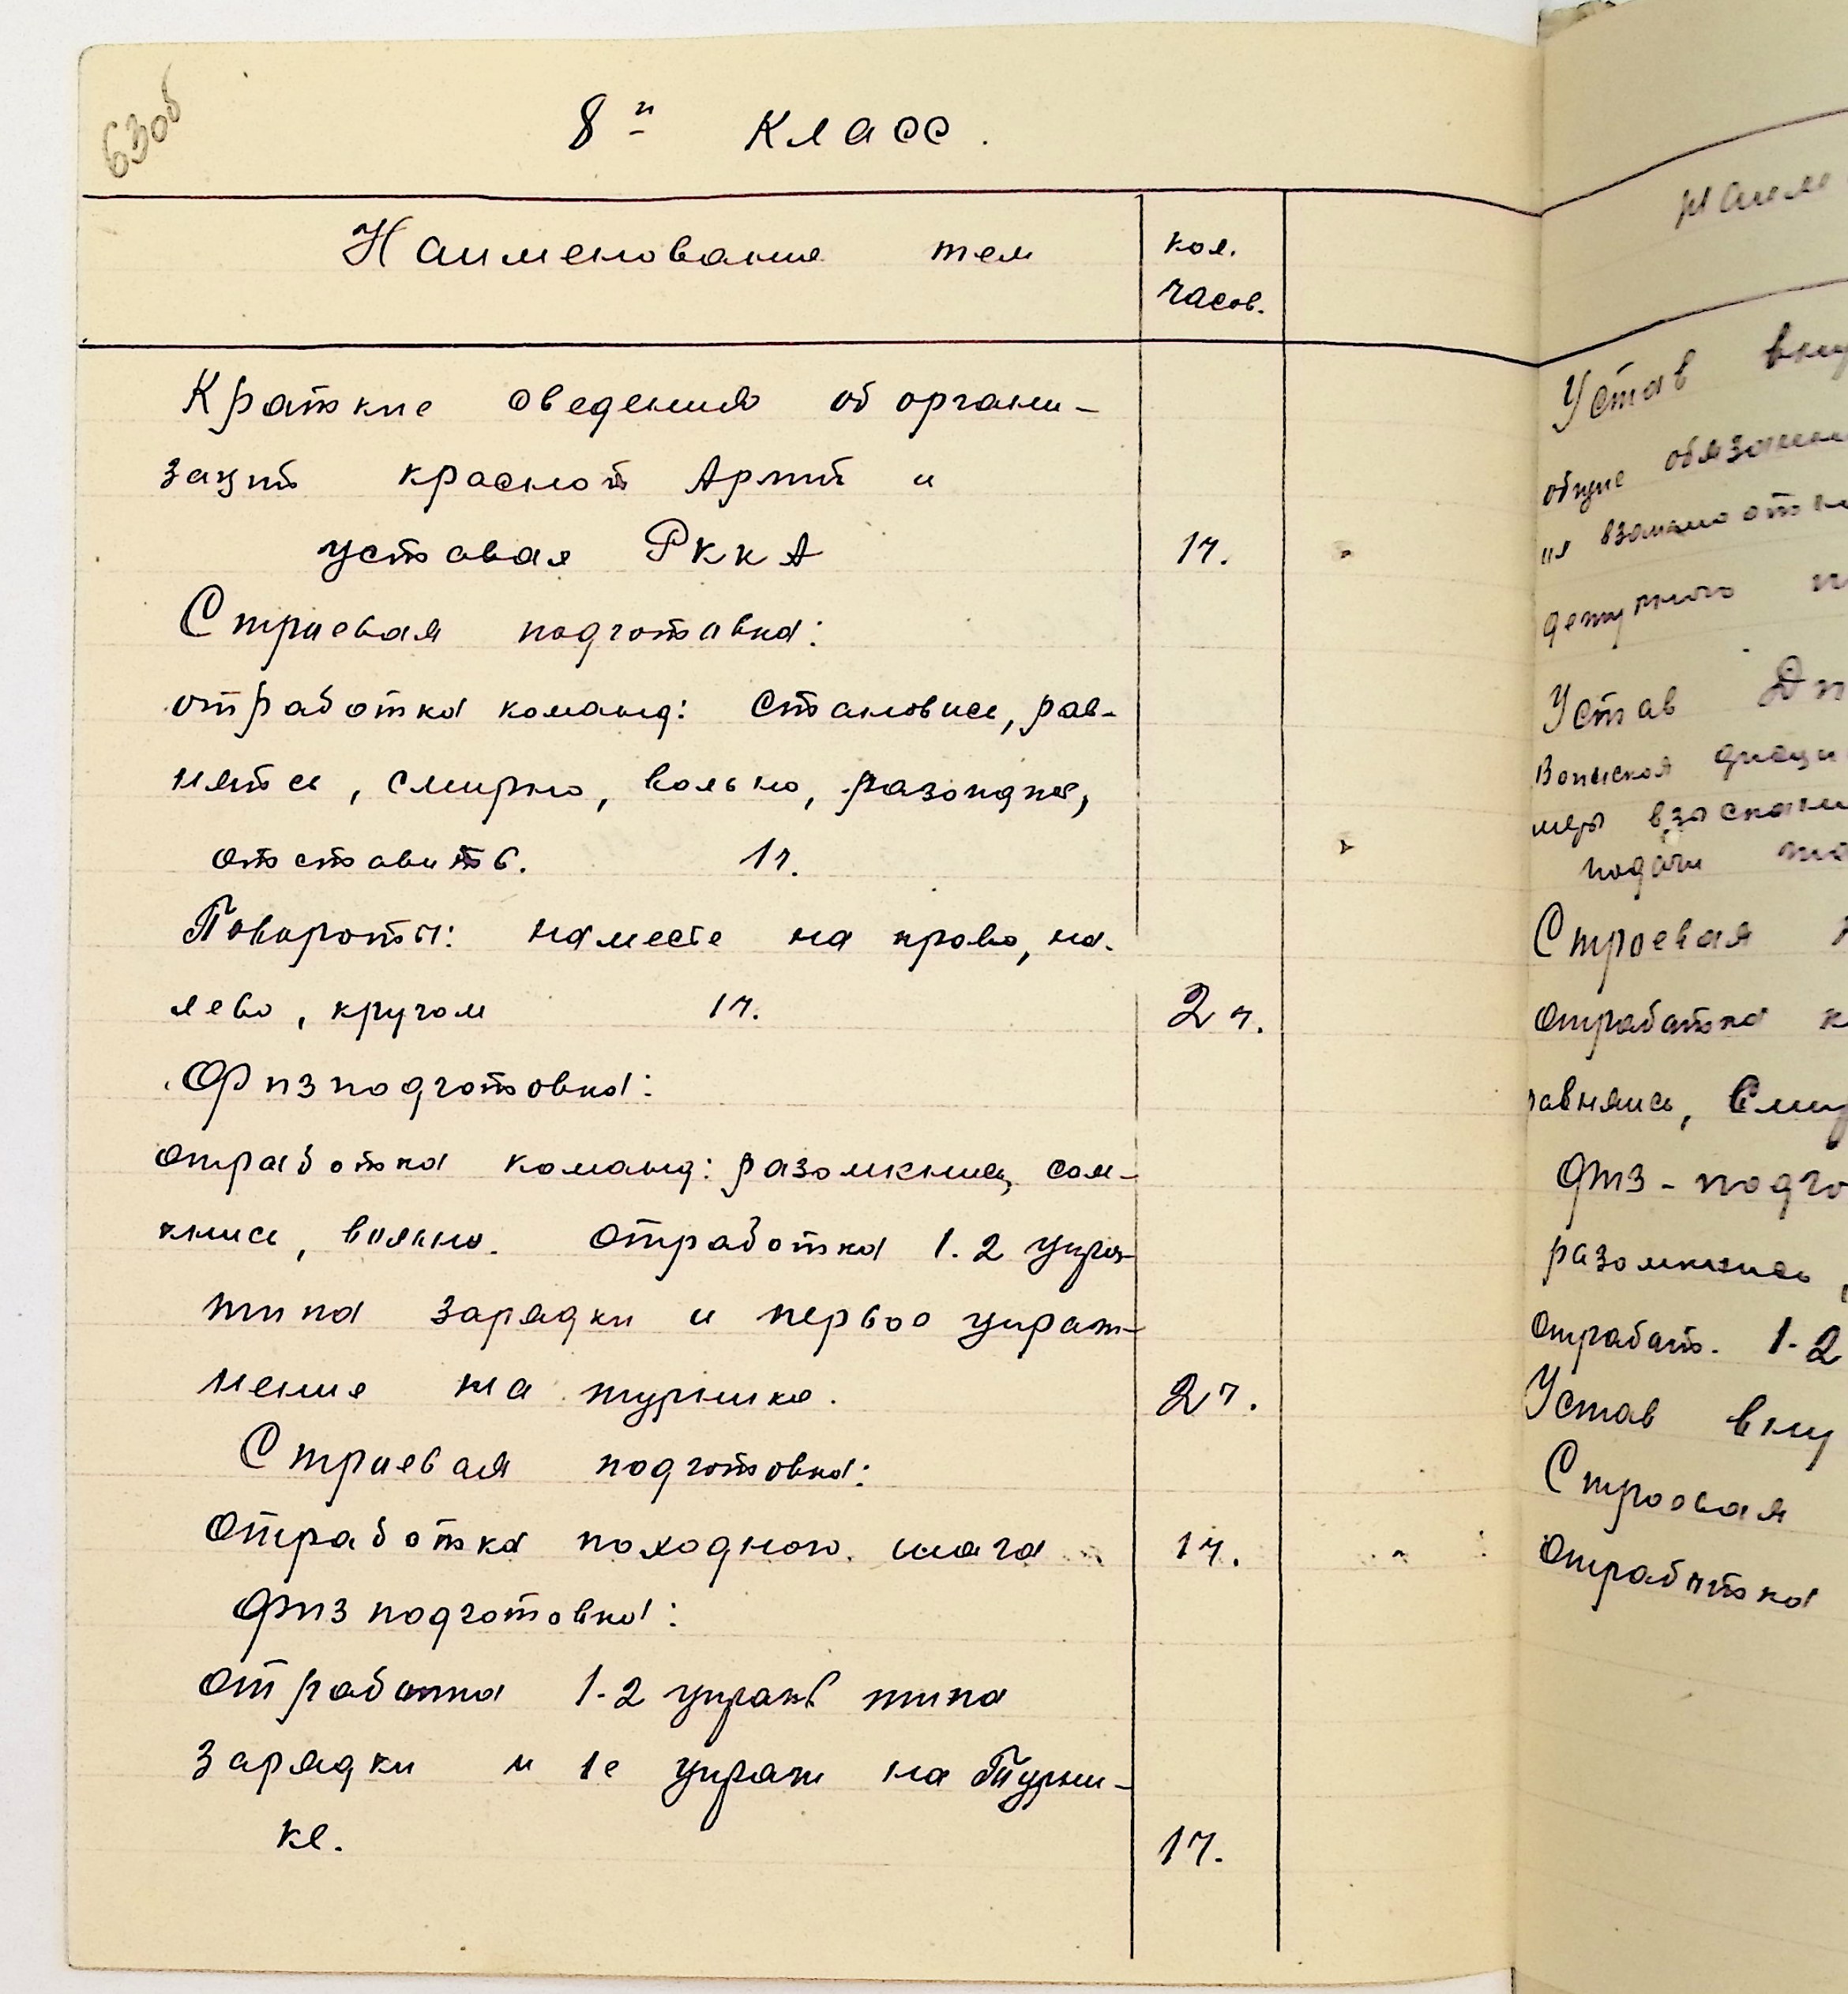 63об
8й класс.
Наименование тем
кол.
часов.
Краткие сведения об органи-
заций красной Армий и
уставая РККА 1ч.
Строевая подготовка:
отработка команд: становись, рав-
няйсь, смирно, вольно, разойдись,
отставить. 1ч.
Повороты: наместе на право, на-
лево, кругом 1ч. 2ч.
Физподготовка:
отработка команд: разомкнись, сом-
кнись, вольно. Отработка 1.2 упраж
типа зарядки и первое упраж-
нение на турнике. 2ч.
Строевая подготовка:
Отработка походного шага 1ч.
Физподготовка:
Отработка 1-2 упраж типа
зарядки и 1е упраж на Турни-
ке. 1ч.
Наиме
Устав вну
общие обязанн
ия взаимоотн
Устав
Воинская дисци
меры взыскани
подачи
Строевая
Отработка к
равняись, Смир
физ-подго
разомкнись,
Отработ. 1-2
Устав вну
Строевая
Отработка